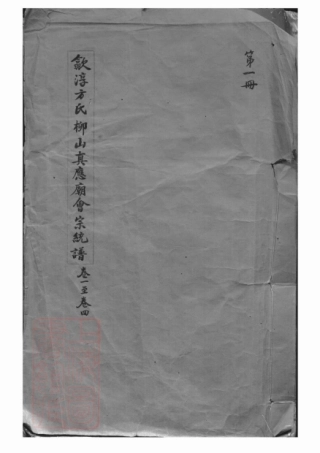 第一冊
歙淳方氏柳山真應廟會宗統譜 卷一至卷四